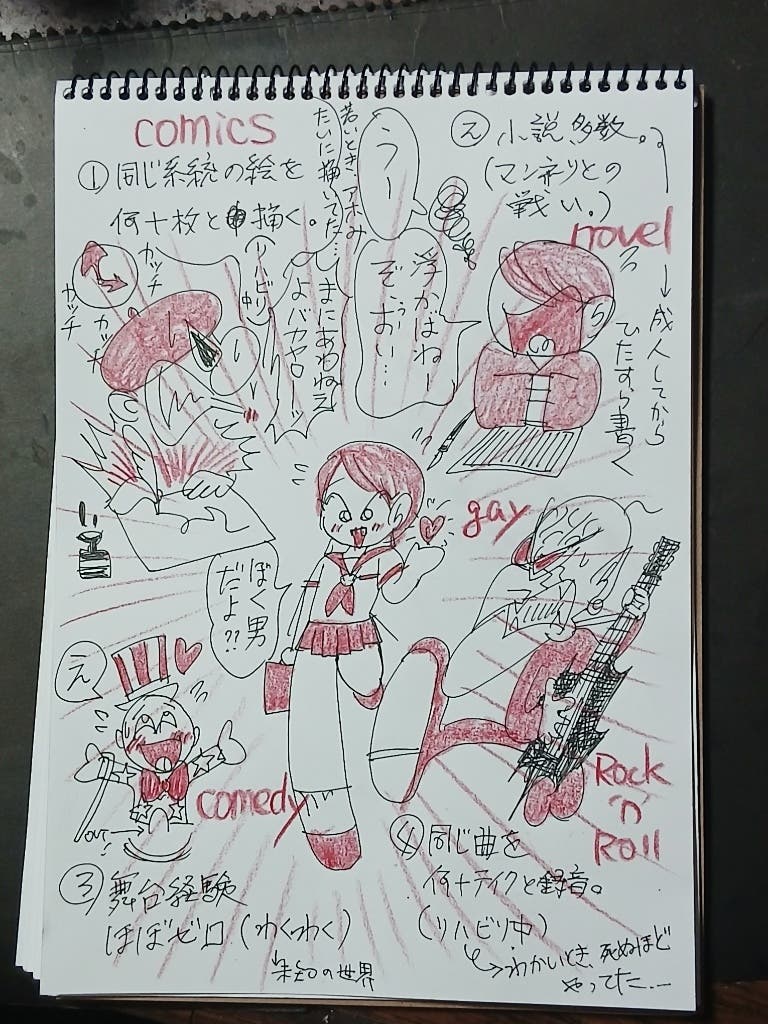 comics
① 同じ系統の絵を
何十枚と描く。
(リハビリ中)
若いとき、アホみ
たいに描いてた…
しまにあわねえ
よバカヤローッ
カッチ
カッチ
カッチ
うー
浮かばねー
ぞぅおい…
② 小説、多数。
(マンネリとの
戦い。)
novel
→成人してから
ひたすら書く
gay
ぼく男
だよ??
え
comedy
OUT!
③ 舞台経験
ほぼゼロ(わくわく)
未知の世界
Rock
'n'
Roll
④ 同じ曲を
何十テイクと録音。
(リハビリ中)
→わかいとき、死ぬほど
やってた…